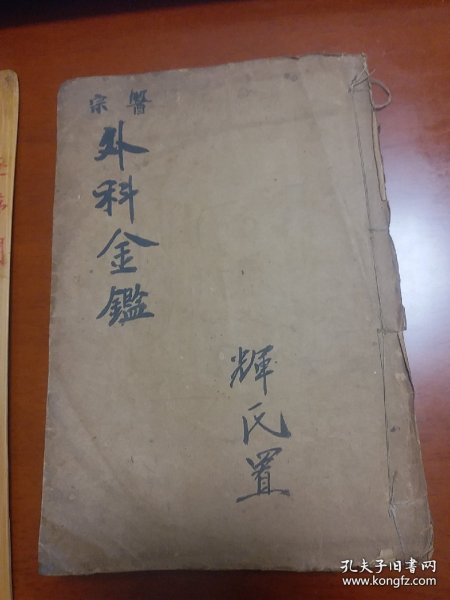 醫宗
外科金鑑
輝氏置
孔夫子旧书网
www.kongfz.com